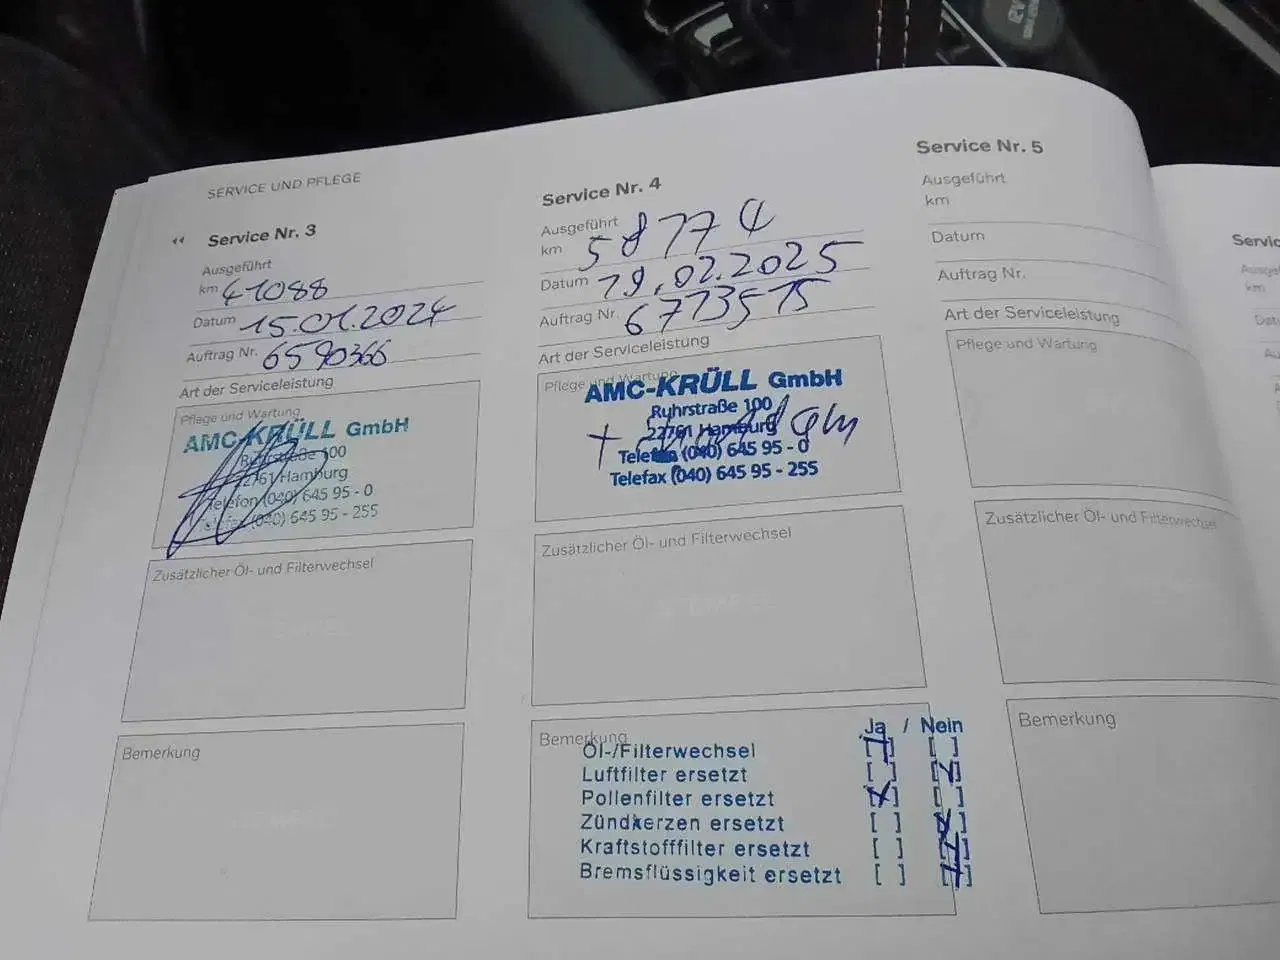 SERVICE UND PFLEGE
Service Nr. 3
Ausgeführt
km 41088
Datum 15.01.2024
Auftrag Nr. 6590366
Art der Serviceleistung
Pflege und Wartung
AMC-KRÜLL GmbH
Ruhrstraße 100
22761 Hamburg
Telefon (040) 645 95 - 0
Telefax (040) 645 95 - 255
Zusätzlicher Öl- und Filterwechsel
Bemerkung
Service Nr. 4
Ausgeführt
km 58774
Datum 19.02.2025
Auftrag Nr. 6773515
Art der Serviceleistung
Pflege und Wartung
AMC-KRÜLL GmbH
Ruhrstraße 100
22761 Hamburg
Telefon (040) 645 95 - 0
Telefax (040) 645 95 - 255
Zusätzlicher Öl- und Filterwechsel
Bemerkung
Ja / Nein
Öl-/Filterwechsel [ ] [ ]
Luftfilter ersetzt [ ] [ ]
Pollenfilter ersetzt [x] [ ]
Zündkerzen ersetzt [ ] [x]
Kraftstofffilter ersetzt [ ] [x]
Bremsflüssigkeit ersetzt [ ] [x]
Service Nr. 5
Ausgeführt
km
Datum
Auftrag Nr.
Art der Serviceleistung
Pflege und Wartung
Zusätzlicher Öl- und Filterwechsel
Bemerkung